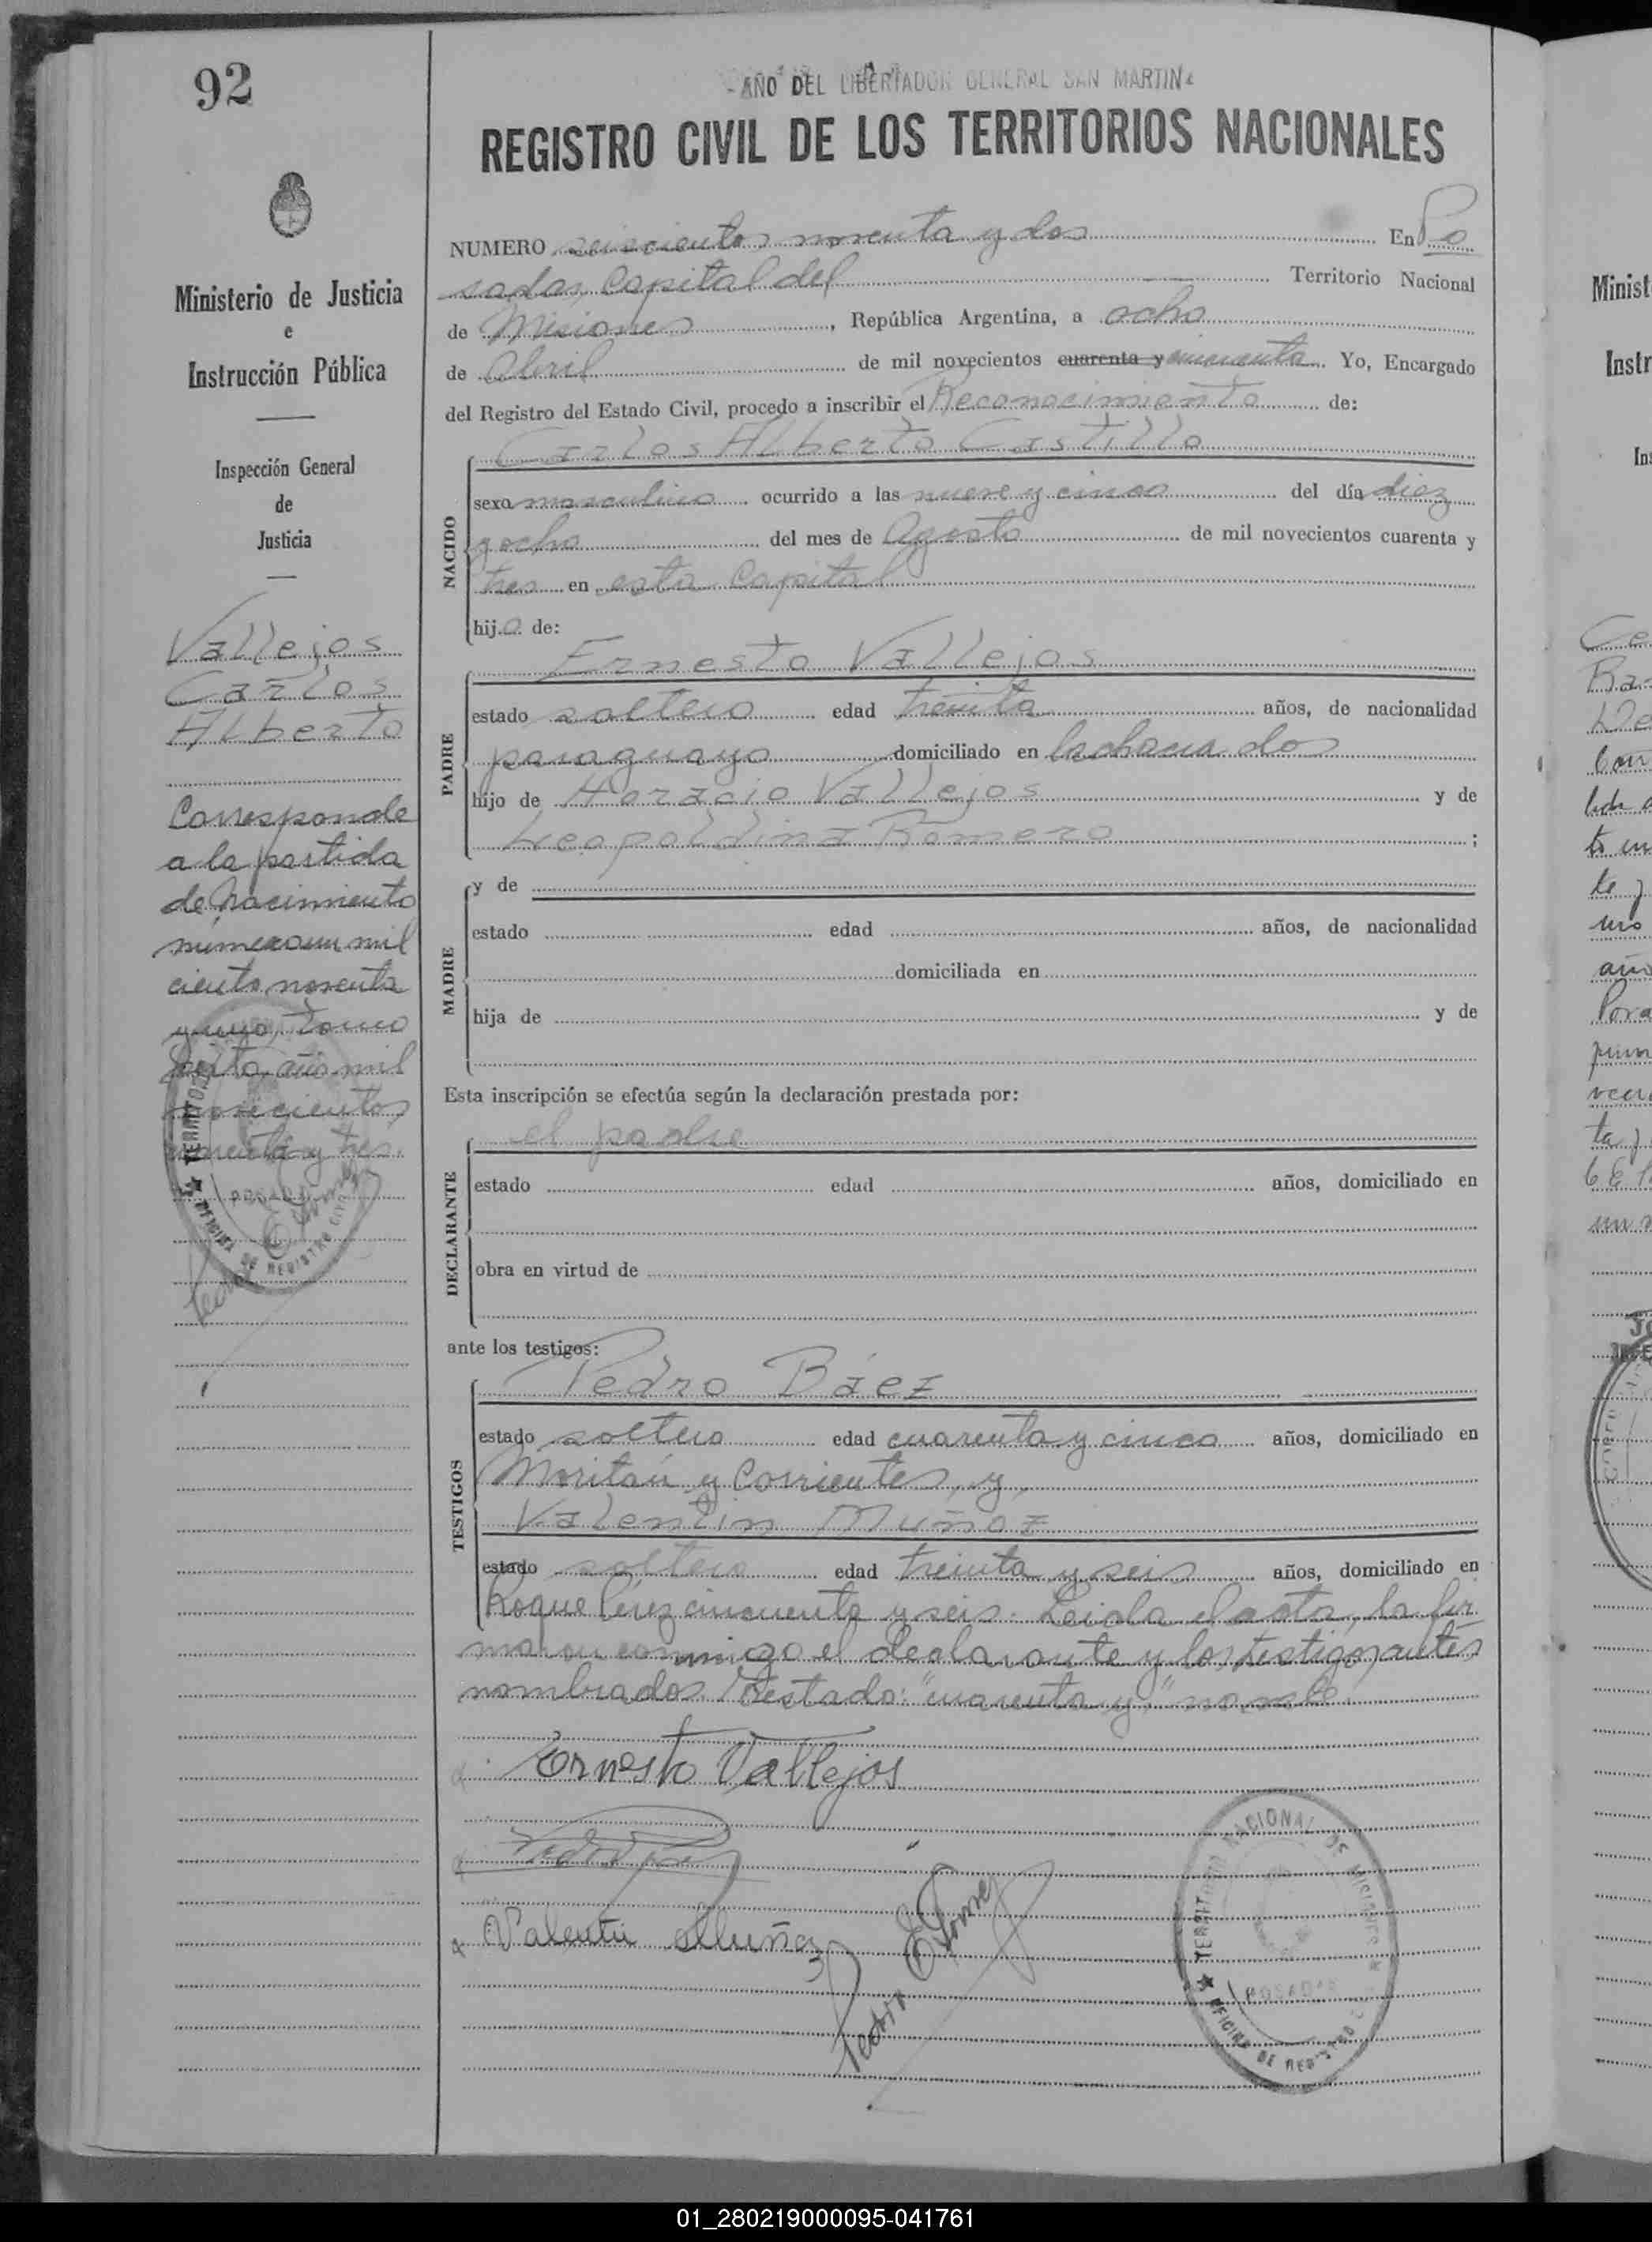 92
Ministerio de Justicia
e
Instrucción Pública
Inspección General
de
Justicia
Vallejos
Carlos
Alberto
Corresponde
a la partida
de Nacimiento
número un mil
ciento noventa
y uno, tomo
año mil
novecientos
cuarenta y tres.
-AÑO DEL LIBERTADOR GENERAL SAN MARTIN-
REGISTRO CIVIL DE LOS TERRITORIOS NACIONALES
NUMERO seiscientos noventa y dos En Po
sadas, Capital del Territorio Nacional
de Misiones, República Argentina, a ocho
de Abril de mil novecientos cuarenta y cincuenta. Yo, Encargado
del Registro del Estado Civil, procedo a inscribir el Reconocimiento de:
Carlos Alberto Castillo
NACIDO
sexo masculino ocurrido a las nueve y cinco del día diez
y ocho del mes de Agosto de mil novecientos cuarenta y
tres en esta Capital
hijo de:
Ernesto Vallejos
PADRE
estado soltero edad treinta años, de nacionalidad
paraguayo domiciliado en la chacra dos
hijo de Horacio Vallejos y de
Leopoldina Romero;
MADRE
y de
estado edad años, de nacionalidad
domiciliada en
hija de y de
Esta inscripción se efectúa según la declaración prestada por:
el padre
DECLARANTE
estado edad años, domiciliado en
obra en virtud de
ante los testigos:
Pedro Báez
TESTIGOS
estado soltero edad cuarenta y cinco años, domiciliado en
Moritán y Corrientes, y
Valentín Muñoz
estado soltero edad treinta y seis años, domiciliado en
Roque Pérez cincuenta y seis. Leida el acta, la fir
maron conmigo el declarante y los testigos antes
nombrados. Testado: "cuarenta y" no vale.
Ernesto Vallejos
Valentin Muñoz
Pedro Gómez
TERRITORIO NACIONAL DE MISIONES
POSADAS
OFICINA DE REGISTRO CIVIL
01_280219000095-041761